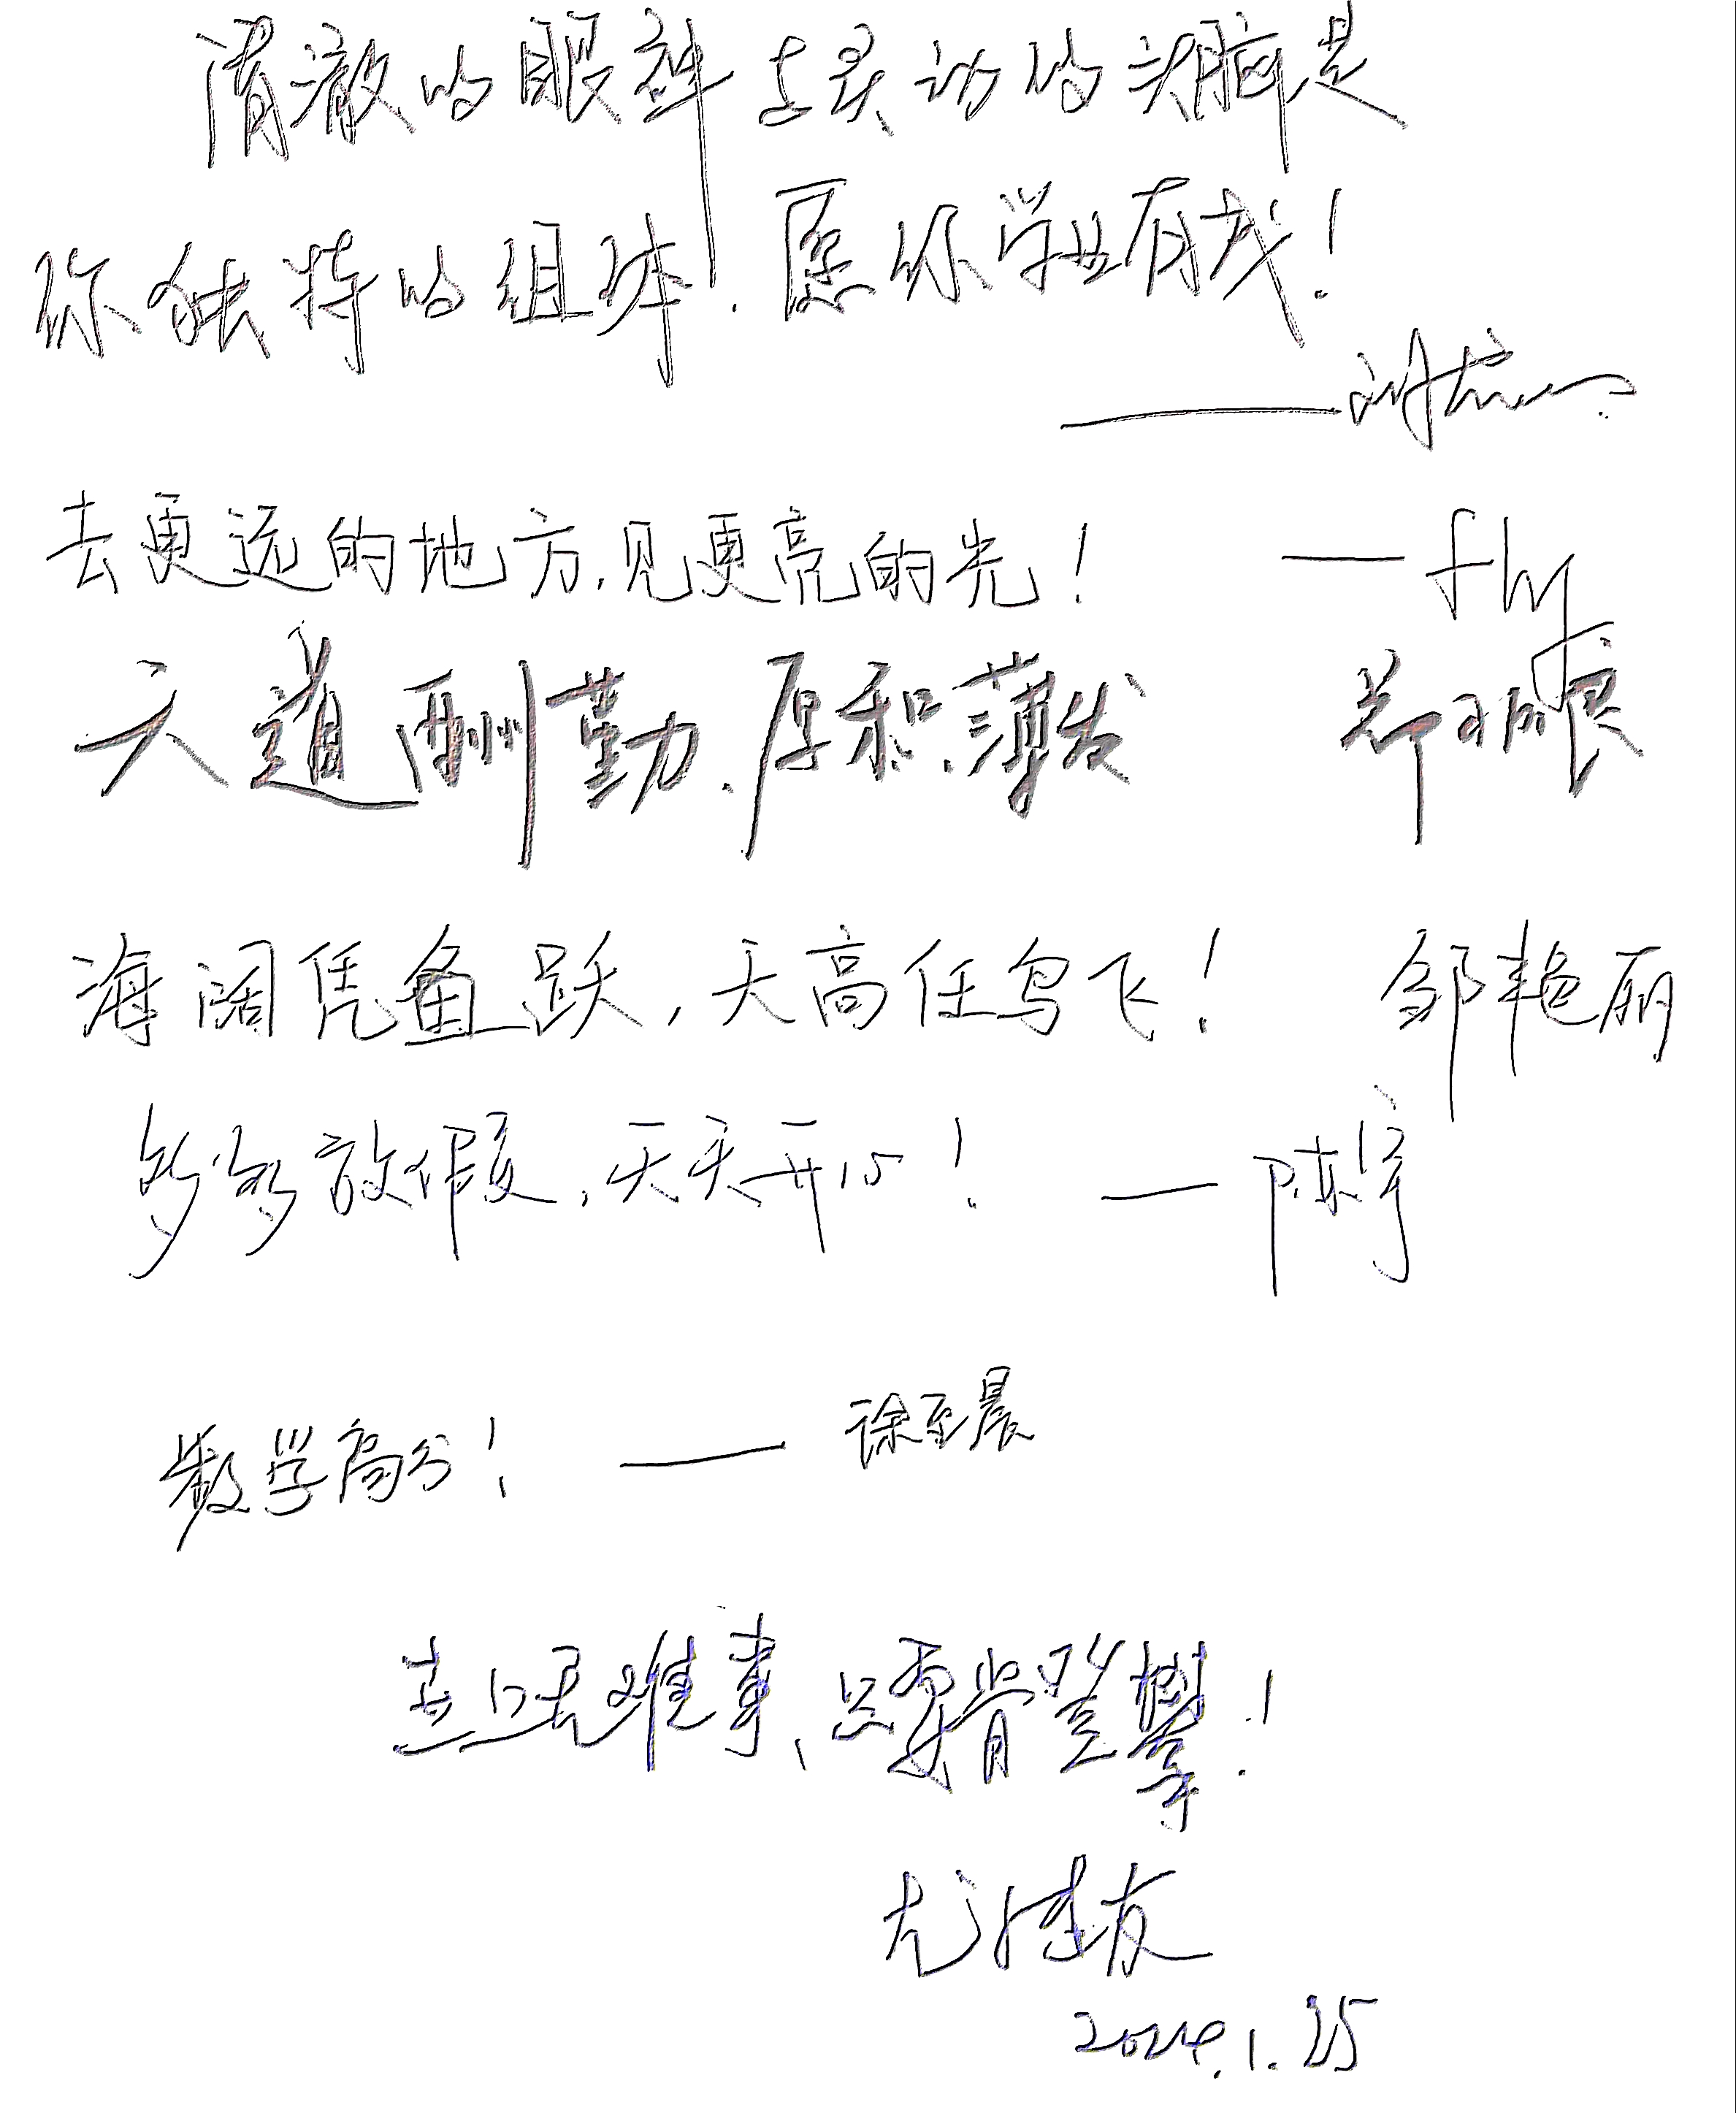 清澈的眼神与灵动的头脑是
你独特的组体.愿你学业有成!
——刘
去更远的地方,见更亮的光! —fly
天道酬勤.厚积薄发 郑
海阔凭鱼跃,天高任鸟飞! 邹艳丽
多多放假,天天开心! —陈宇
数学高分! —徐至晨
世上无难事、只要肯登攀!
尤
2024.1.25